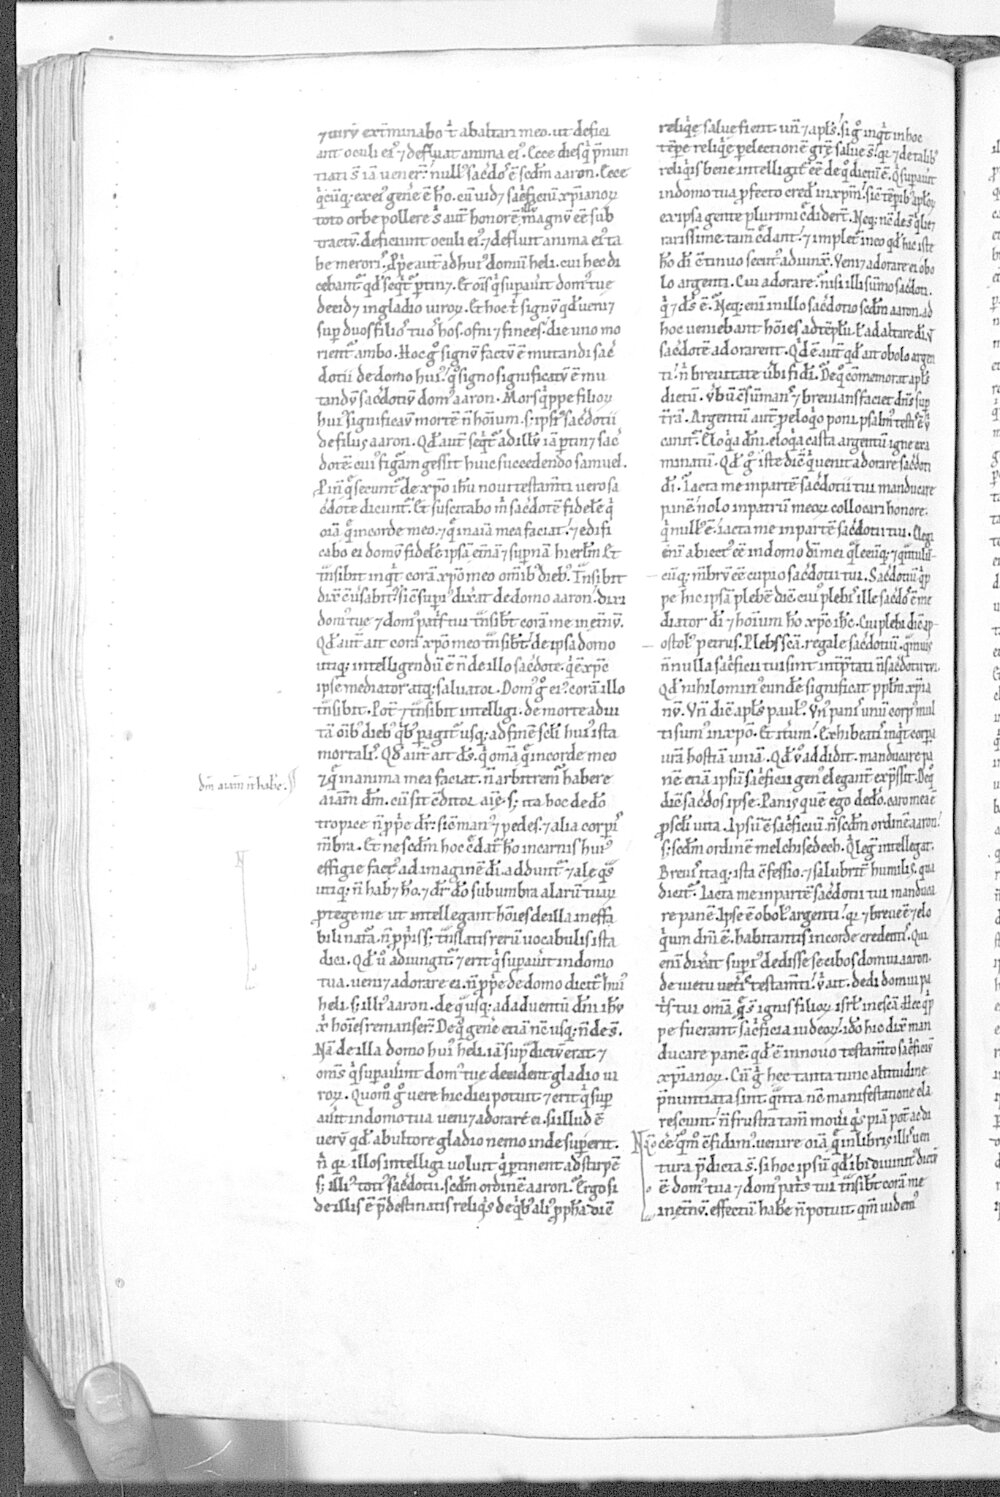 ⁊ uirū ext̄minabo t̄ abaltari meo. ut defici
ant oculi eiꝰ ⁊ defluat anima eiꝰ. Ecce dies q̇ p̄nun
tiati s̄ iā uener̄. nullꝰ sac̄dos ē scd̄m aaron. Ecce
q̇cūq; ex eiꝰ gene ē ho. cū uidꝫ sac̄ficiū xp̄ianoꝝ
toto orbe pollere s̄ autē honorē magnū eē sub
tractū. deficiunt oculi eiꝰ ⁊ defluit anima eiꝰ ta
be meroriꝰ. p̄pe autē ad huiꝰ domū heli. cui hec di
cebantꝰ qd̄ seq̇tꝰ ptinꝫ. Et oīs q̇ supauit domꝰ tue
decidꝫ in gladio uiroꝝ. Et hoc t̄ signū qd̄ ueniꝫ
sup duos filios tuos hos. ofni ⁊ finees. die uno mo
rientꝰ ambo. Hoc g̊ signū factū ē mutandi sac̄
dotii de domo huiꝰ. q̊ signo significatū ē mu
tandū sac̄dotiū domꝰ aaron. Mors q̇ppe filioꝝ
huiꝰ significauit mortē n̄ hoium. s; ipsiꝰ sac̄dotii
de filiis aaron. Qd̄ autē seq̇tꝰ ad illū iā ptinꝫ sac̄
dotē. cuiꝰ figam gessit huic succedendo samuel.
Pīn q̄ secunt̄ de xp̄o ihu noui testam̄ti uero sa
c̄dote dicuntꝰ. Et suscitabo m̄ sac̄dotē fidelē q̇
oīa q̄ in corde meo. ⁊ q̄ in aīa mea faciat. ⁊ edifi
cabo ei domū fidelē ipsā et̄na ⁊ supnā hierl̄m. Et
tn̄sibit inq̇t corā xp̄o meo om̄ibꝰ diebꝰ. Tn̄sibit
dix̄ c̄ūsabitꝰ. sic̄ supiꝰ dixat de domo aaron. Dixi
domꝰ tue ⁊ domꝰ patris tui tn̄sibt corā me in et̄nū.
Qd̄ autē ait corā xp̄o meo tn̄sibit. de ipsa domo
utiq; intelligendū ē n̄ de illo sac̄dote. q̇ ē xp̄c
ipse mediator atq; saluator. Domꝰ g̊ eiꝰ corā illo
tn̄sibit. Pot̄ ⁊ tn̄sibit intelligi. de morte ad ui
tā oībꝰ diebꝰ q̇bꝰ pagitꝰ usq; ad finē scl̄i huiꝰ ista
mortaliꝰ. Qd̄ autē ait ds̄. q̇ omā q̄ in corde meo
⁊ q̄ in anima mea faciat. n̄ arbitremꝰ habere
aīam dm̄. cū sit c̄ditor aīe. s; ita hoc de do
tropice n̄ p̄pe dr̄. sic̄ manꝰ ⁊ pedes. ⁊ alia corporiꝰ
m̄bra. Et ne scd̄m hoc c̄dat̄ ho in carnis huiꝰ
effigie factꝰ ad imaginē di. adduntꝰ ⁊ ale q̄s
utiq; n̄ habꝫ ho. ⁊ dr̄ do sub umbra alarū tuaꝝ
ptege me ut intellegant hoīes de illa ineffa
bili nat̄a. n̄ p̄piis s; tn̄slatis rerū uocabulis ista
dici. Qd̄ ů adiungitꝰ. ⁊ erit q̇ supauit in domo
tua. ueniꝫ adorare ei. n̄ p̄pe de domo dicitꝰ huiꝰ
heli. s; illiꝰ aaron. de q̄ usq; ad aduentū dn̄i ihu
x̄ hoīes remanserꝰ. De q̊ gene etiā nc̄ usq; n̄ des̄.
Nā de illa domo huiꝰ heli. iā supꝰ dictū erat. ⁊
om̄s q̇ supauint domꝰ tue decident gladio ui
roꝝ. Quom̊ g̊ uere hic dici potuit. ⁊ erit q̇ sup
auit in domo tua ueniꝫ adorare ei. si illud ē
uerū qd̄ ab ultore gladio nemo inde supit.
n̄ qꝛ illos intelligi uoluit q̇ ptinent ad stirpē
s; illiꝰ totiꝰ sac̄dotii. scd̄m ordinē aaron. Ergo si
de illis ē p̄destinatis reliq̇s de q̇bꝰ aliꝰ p̄pha dic̄
reliq̇e salue fient. un̄ ⁊ apl̄s. sic g̊ inq̇t in hoc
tēpe reliq̇e p electionē gr̄e salue s̄. qꝛ ⁊ de talibꝰ
reliq̇is bene intelligitꝰ eē de q̊ dictū ē. Q̇ supauit
in domo tua pfecto credit in xp̄m. sic̄ tēpibꝰ aploꝝ
ex ipsa gente plurimi c̄didert̄. Neq; nc̄ des̄ q̇ licꝫ
rarissime. tam̄ c̄dant. ⁊ impletꝰ in eo qd̄ hic iste
ho di ē tinuo secutꝰ adiunx̄. Veniꝫ adorare ei obo
lo argenti. Cui adorare. n̄ si illi sūmo sac̄doti.
q̇ ⁊ ds̄ ē. Neq; enī in illo sac̄dotio scd̄m aaron. ad
hoc ueniebant hoīes ad tēplū. ł ad altare di. ut
sac̄dotē adorarent. Qd̄ ē autē qd̄ ait obolo argen
ti. n̄ breuitate ūbi fidi. De q̊ c̄memorat apl̄s
dictū. ūbū c̄sūmanꝰ ⁊ breuians faciet dn̄s sup
t̄rā. Argentū autē p eloq̇o poni psalmꝰ testis ē ů
canitꝰ. Eloq̇a dn̄i. eloq̇a casta argentū igne exa
minatū. Qd̄ g̊ iste dic̄ q̇ uenit adorare sac̄doti
di. Iacta me in partē sac̄dotii tui manducare
panē. nolo in patrū meoꝝ collocari honore.
q̇ nullꝰ ē. iacta me in partē sac̄dotii tui. Elegi
enī abiectꝰ eē in domo di mei q̇lcūq; ⁊ q̄ntulū
cūq; m̄brū eē cupio sac̄dotii tui. Sac̄dotiū q̇p
pe hic ipsā plebē dic̄ cuiꝰ plebiꝰ ille sac̄dos ē me
diator di ⁊ hoīum ho xp̄c ihc. Cui plebi dic̄ ap
ostolꝰ petrus. Plebs sc̄a. regale sac̄dotiū. q̄muis
n̄nulli sac̄ficii tui sint int̄ptati. n̄ sac̄dotii tui.
Qd̄ nihilominꝰ eundē significat pplm̄ xp̄ia
nū. Un̄ dic̄ apl̄s paulꝰ. Unꝰ panis unū corpꝰ mul
ti sumꝰ in xp̄o. Et it̄um. Exhibeatis inq̇t corpa
ura hostiā uiuā. Qd̄ ů addidit. manducare pa
nē. etiā ipsū sac̄ficii genꝰ elegant̄ exp̄ssit. De q̊
dic̄ sac̄dos ipse. Panis quē ego dedo. caro mea ē
p scl̄i uita. Ipsū ē sac̄ficiū. n̄ scd̄m ordinē aaron.
s; scd̄m ordinē melchisedech. Q̇ leḡ intellegat.
Breuis itaq; ista c̄fessio. ⁊ salubriꝰ humilis. qua
dicitꝰ. Iacta me in partē sac̄dotii tui manduca
re panē. Ipse ē obolꝰ argenti. qꝛ ⁊ breue ē ⁊ elo
q̇um dn̄i ē. habitantis in corde credentiꝰ. Qui
enī dix̄at supiꝰ dedisse se cibos domui aaron.
de uictu ueteris testam̄ti. ů ait. dedi domui pa
tris tui omā q̄ s̄ ignis filioꝝ isr̄l in escā. Hec q̇p
pe fuerant sac̄ficia iudeoꝝ. ido hic dix̄ man
ducare panē. qd̄ ē in nouo testam̄to sac̄ficiū
xp̄ianoꝝ. Cū g̊ hec tanta tunc altitudine
p̄nuntiata sint. q̄nta nc̄ manifestatione cla
rescunt. n̄ frustra tam̄ moueri q̇s piā pot̄ ac di
Nqo c̄ē. q̊m̊ c̄fidimꝰ uenire oīa q̄ in libris illis uen
tura p̄dicta s̄. si hoc ipsū qd̄ ibi diuinitꝰ dictū
ē. domꝰ tua ⁊ domꝰ patris tui tn̄sibt corā me
in et̄nū. effectū habe n̄ potuit. qm̄ uidemꝰ
dm̄ aīam n̄ habe.